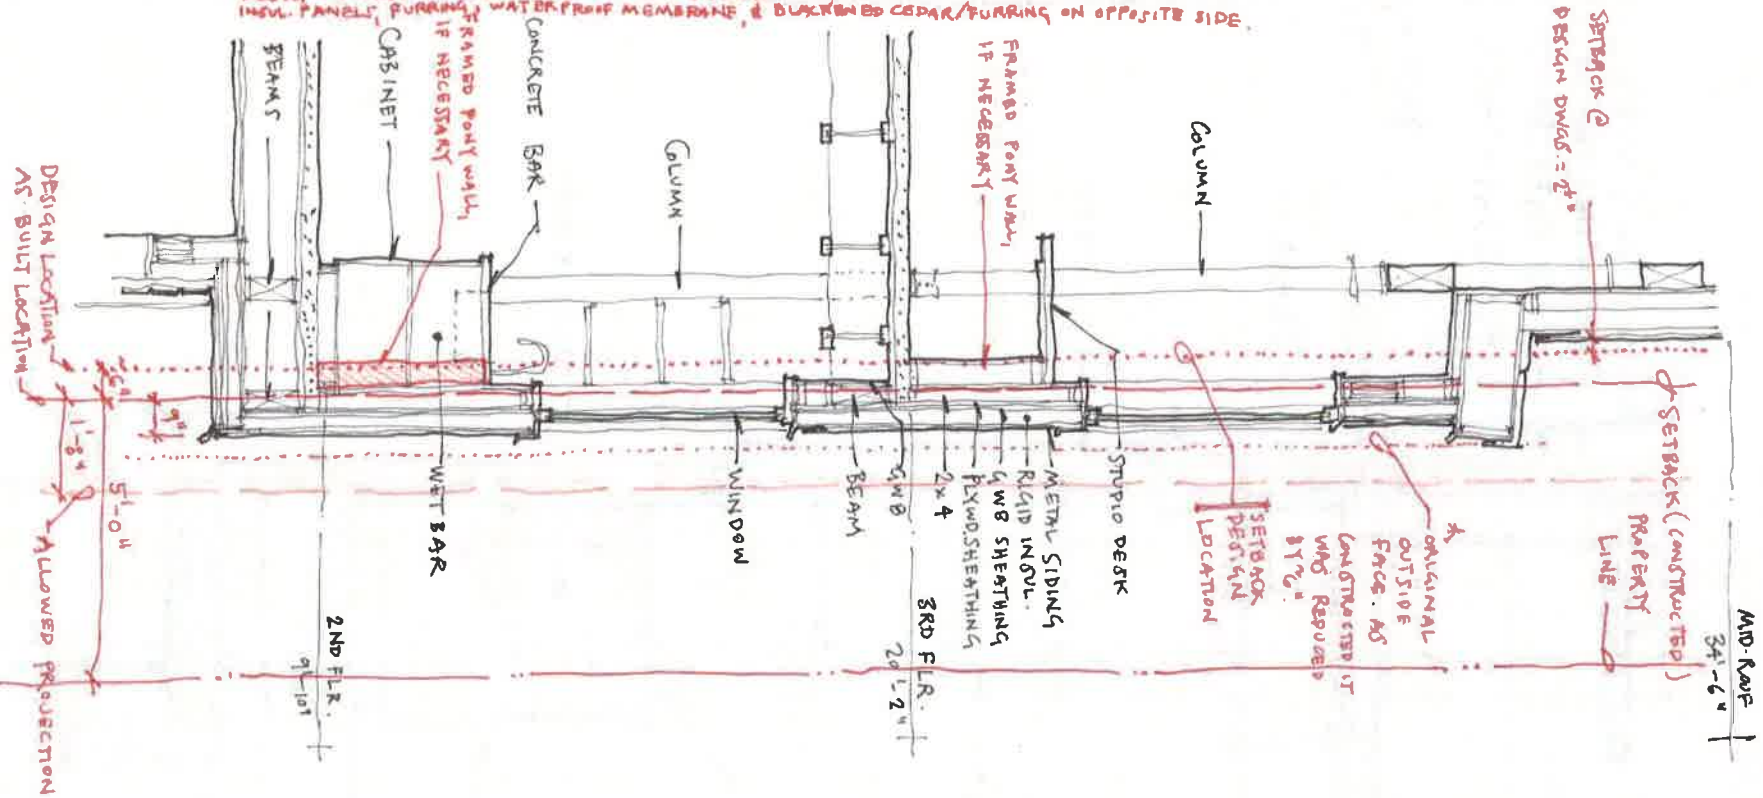 INSUL. PANELS, FURRING, WATERPROOF MEMBRANE, & BLACKENED CEDAR/FURRING ON OPPOSITE SIDE.
BEAMS
CABINET
FRAMED PONY WALL,
IF NECESSARY
CONCRETE BAR
COLUMN
FRAMED PONY WALL,
IF NECESSARY
COLUMN
SETBACK @
DESIGN DWGS. =
DESIGN LOCATION
AS-BUILT LOCATION
6"
9"
1'-8"
5'-0"
ALLOWED PROJECTION
WET BAR
WINDOW
BEAM
GWB
2x4
PLYWD. SHEATHING
GWB SHEATHING
RIGID INSUL.
METAL SIDING
STUDIO DESK
SETBACK
DESIGN
LOCATION
* ORIGINAL
OUTSIDE
FACE. AS
CONSTRUCTED IT
WAS REDUCED
BY ~6"
PROPERTY
LINE
SETBACK (CONSTRUCTED)
2ND FLR.
3RD FLR.
20'-2"
MID-ROOF
34'-6"